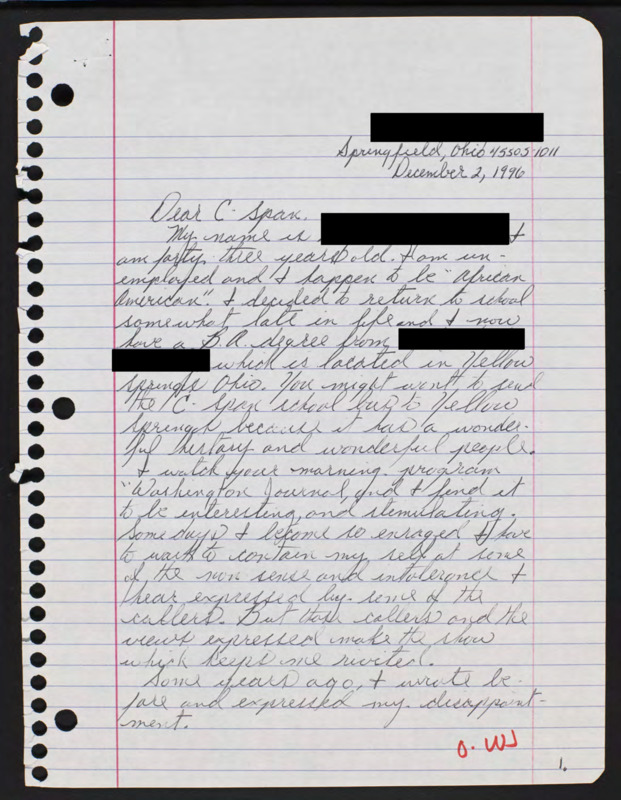 Springfield, Ohio 45505-1011
December 2, 1996
Dear C-Span,
My name is I
am forty-three years old. I am un-
employed and I happen to be "African
American". I decided to return to school
somewhat late in life and I now
have a B.A. degree from
which is located in Yellow
Springs Ohio. You might want to send
the C-Span school bus to Yellow
Springs because it has a wonder-
ful history and wonderful people.
I watch your morning program
"Washington Journal, and I find it
to be interesting, and stimulating.
Some days I become so enraged I have
to work to contain my self at some
of the non sense and intolerance I
hear expressed by some of the
callers. But those callers and the
views expressed make the show
which keeps me riveted.
Some years ago, I wrote be-
fore and expressed my disappoint-
ment.
O. WJ
1.